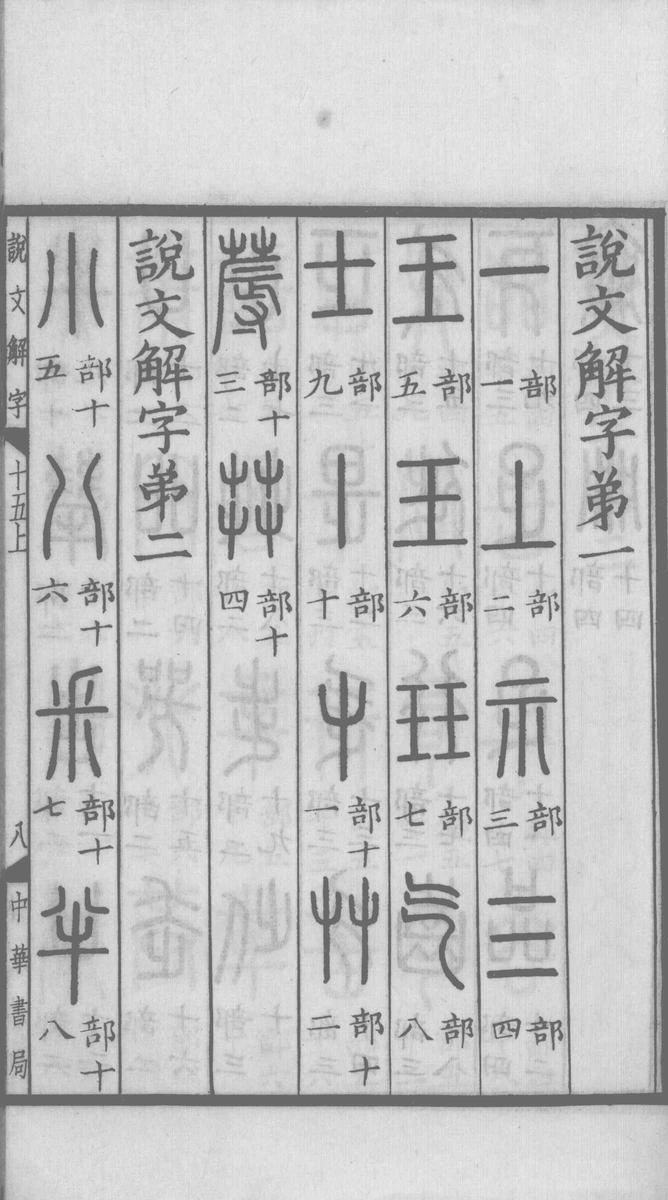 說文解字弟一
一部一丄部二示部三三部四
王部五玉部六玨部七气部八
士部九丨部十屮部十一艸部十二
蓐部十三茻部十四
說文解字弟二
小部十五八部十六釆部十七半部十八
說文解字 十五上 八 中華書局